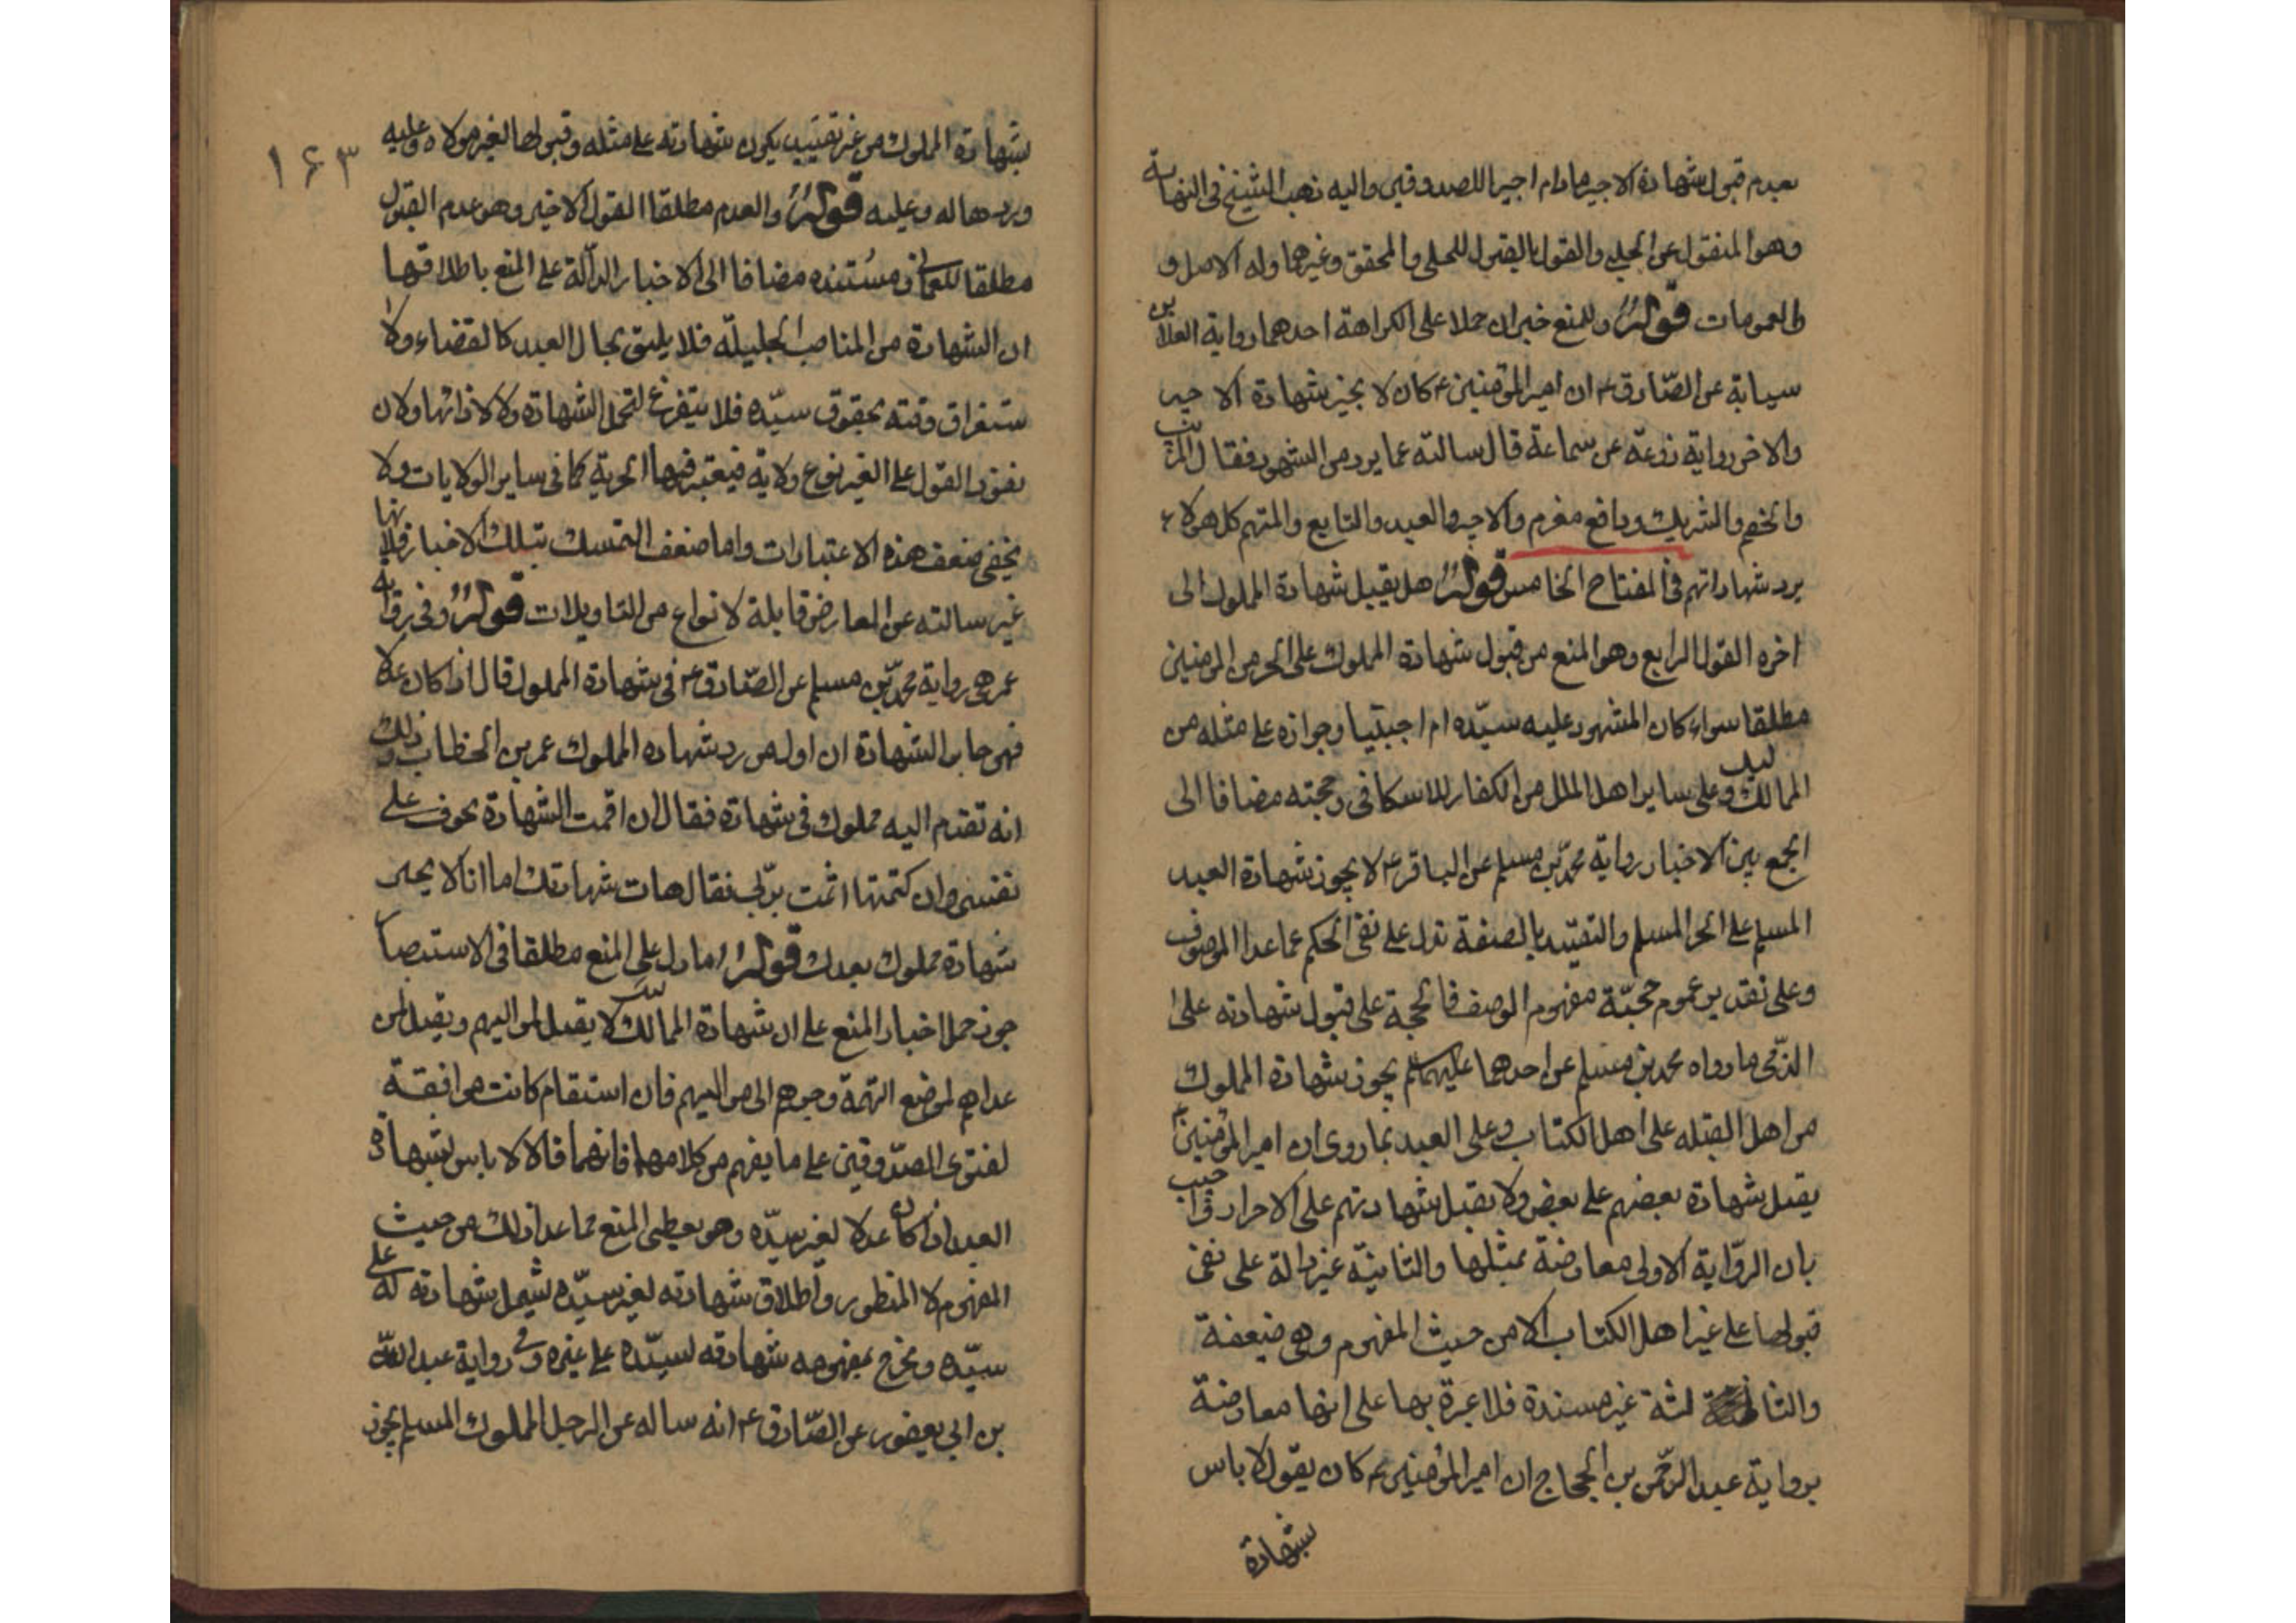 بعدم قبول شهادة الاجير مادام اجيرا للصدوقين واليه ذهب الشيخ فى النهاية
وهو المنقول عن الحلبى والقول بالقبول للحلى والمحقق وغيرهما وله الاصل و
والعمومات قوله وللمنع خبران حملا على الكراهة احدهما رواية العلا بن
سيابة عن الصّادق ع ان امير المؤمنين ع كان لا يجيز شهادة الاجير
والاخر رواية زرعة عن سماعة قال سالته عما يرد من الشهود فقال المريب
والخصم والشريك ودافع مغرم والاجير والعبد والتابع والمتهم كل هولاء
يرد شهاداتهم فى المفتاح الخامس قوله هل يقبل شهادة المملوك الى
اخره القول الرابع وهو المنع من قبول شهادة المملوك على الحر من المومنين
مطلقا سواء كان المشهود عليه سيّده ام اجنبيا وجوازه على مثله من
المماليك وعلى ساير اهل الملل من الكفار للاسكافى وحجته مضافا الى
الجمع بين الاخبار رواية محمّد بن مسلم عن الباقر ع لا يجوز شهادة العبد
المسلم على الحر المسلم والتقييد بالصفة تدل على نفى الحكم عما عدا الموصوف
وعلى تقدير عموم حجيّة مفهوم الوصف فالحجة على قبول شهادته على
الذّمى ما رواه محمد بن مسلم عن احدهما عليهما السلم يجوز شهادة المملوك
من اهل القبله على اهل الكتاب وعلى العبد بما روى ان امير المؤمنين ع
يقبل شهادة بعضهم على بعض ولا يقبل شهادتهم على الاحرار واجيب
بان الرّواية الاولى معارضة بمثلها والثانيّة غير دالة على نفى
قبولها على غير اهل الكتاب الا من حيث المفهوم وهى ضعيفة
والثالثة غير مسندة فلا عبرة بها على انها معارضة
برواية عبد الرّحمن بن الحجاج ان امير المؤمنين ع كان يقول لا باس
بشهادة
١۶٣
بشهادة المملوك من غير تقييد يكون شهادته على مثله وقبولها لغير مولاه وعليه
وردها له وعليه قوله والعدم مطلقا القول الاخير وهو عدم القبول
مطلقا للعمانى ومستنده مضافا الى الاخبار الدالّة على المنع باطلاقها
ان الشهادة من المناصب الجليلّة فلا يليق بحال العبد كالقضاء ولا
ستغراق وقته بحقوق سيّده فلا يتفرغ لتحمل الشهادة ولا لاداتها ولان
نفوذ القول على الغير نوع ولاية فيعتبر فيها الحرية كما فى ساير الولايات ولا
يخفى ضعف هذه الاعتبارات واما ضعف التمسك بتلك الاخبار فلانها
غير سالته عن المعارض قابلة لانواع من التاويلات قوله وفى رواية
عمر هى رواية محمّد بن مسلم عن الصّادق ع فى شهادة المملوك قال اذا كان عدلا
فهو جايز الشهادة ان اول من رد شهادة المملوك عمر بن الخطاب وذلك
انه تقدم اليه مملوك فى شهادة فقال ان اقمت الشهادة تخوف على
نفسى وان كتمتها اثمت بربى فقال هات شهادتك اما انا لا يجيز
شهادة مملوك بعدك قوله اما دل على المنع مطلقا فى الاستبصار
جوز حمل اخبار المنع على ان شهادة المماليك لا يقبل لمواليهم ويقبل لمن
عداهم لموضع التهمة وجرهم الى مواليهم فان استقام كانت موافقة
لفتوى الصدّوقين على ما يفهم من كلامهما فانهما قالا لا باس بشهادة
العبد اذا كان عدلا لغير سيّده وهو يعطى المنع مما عدا ذلك من حيث
المفهوم لا المنطور واطلاق شهادته لغير سيّده يشمل شهادته له على
سيّده ويخرج بمفهومه شهادته لسيّده على غيره وفى رواية عبد اللّه
بن ابى يعفور عن الصّادق ع انه ساله عن الرجل المملوك المسلم يجوز